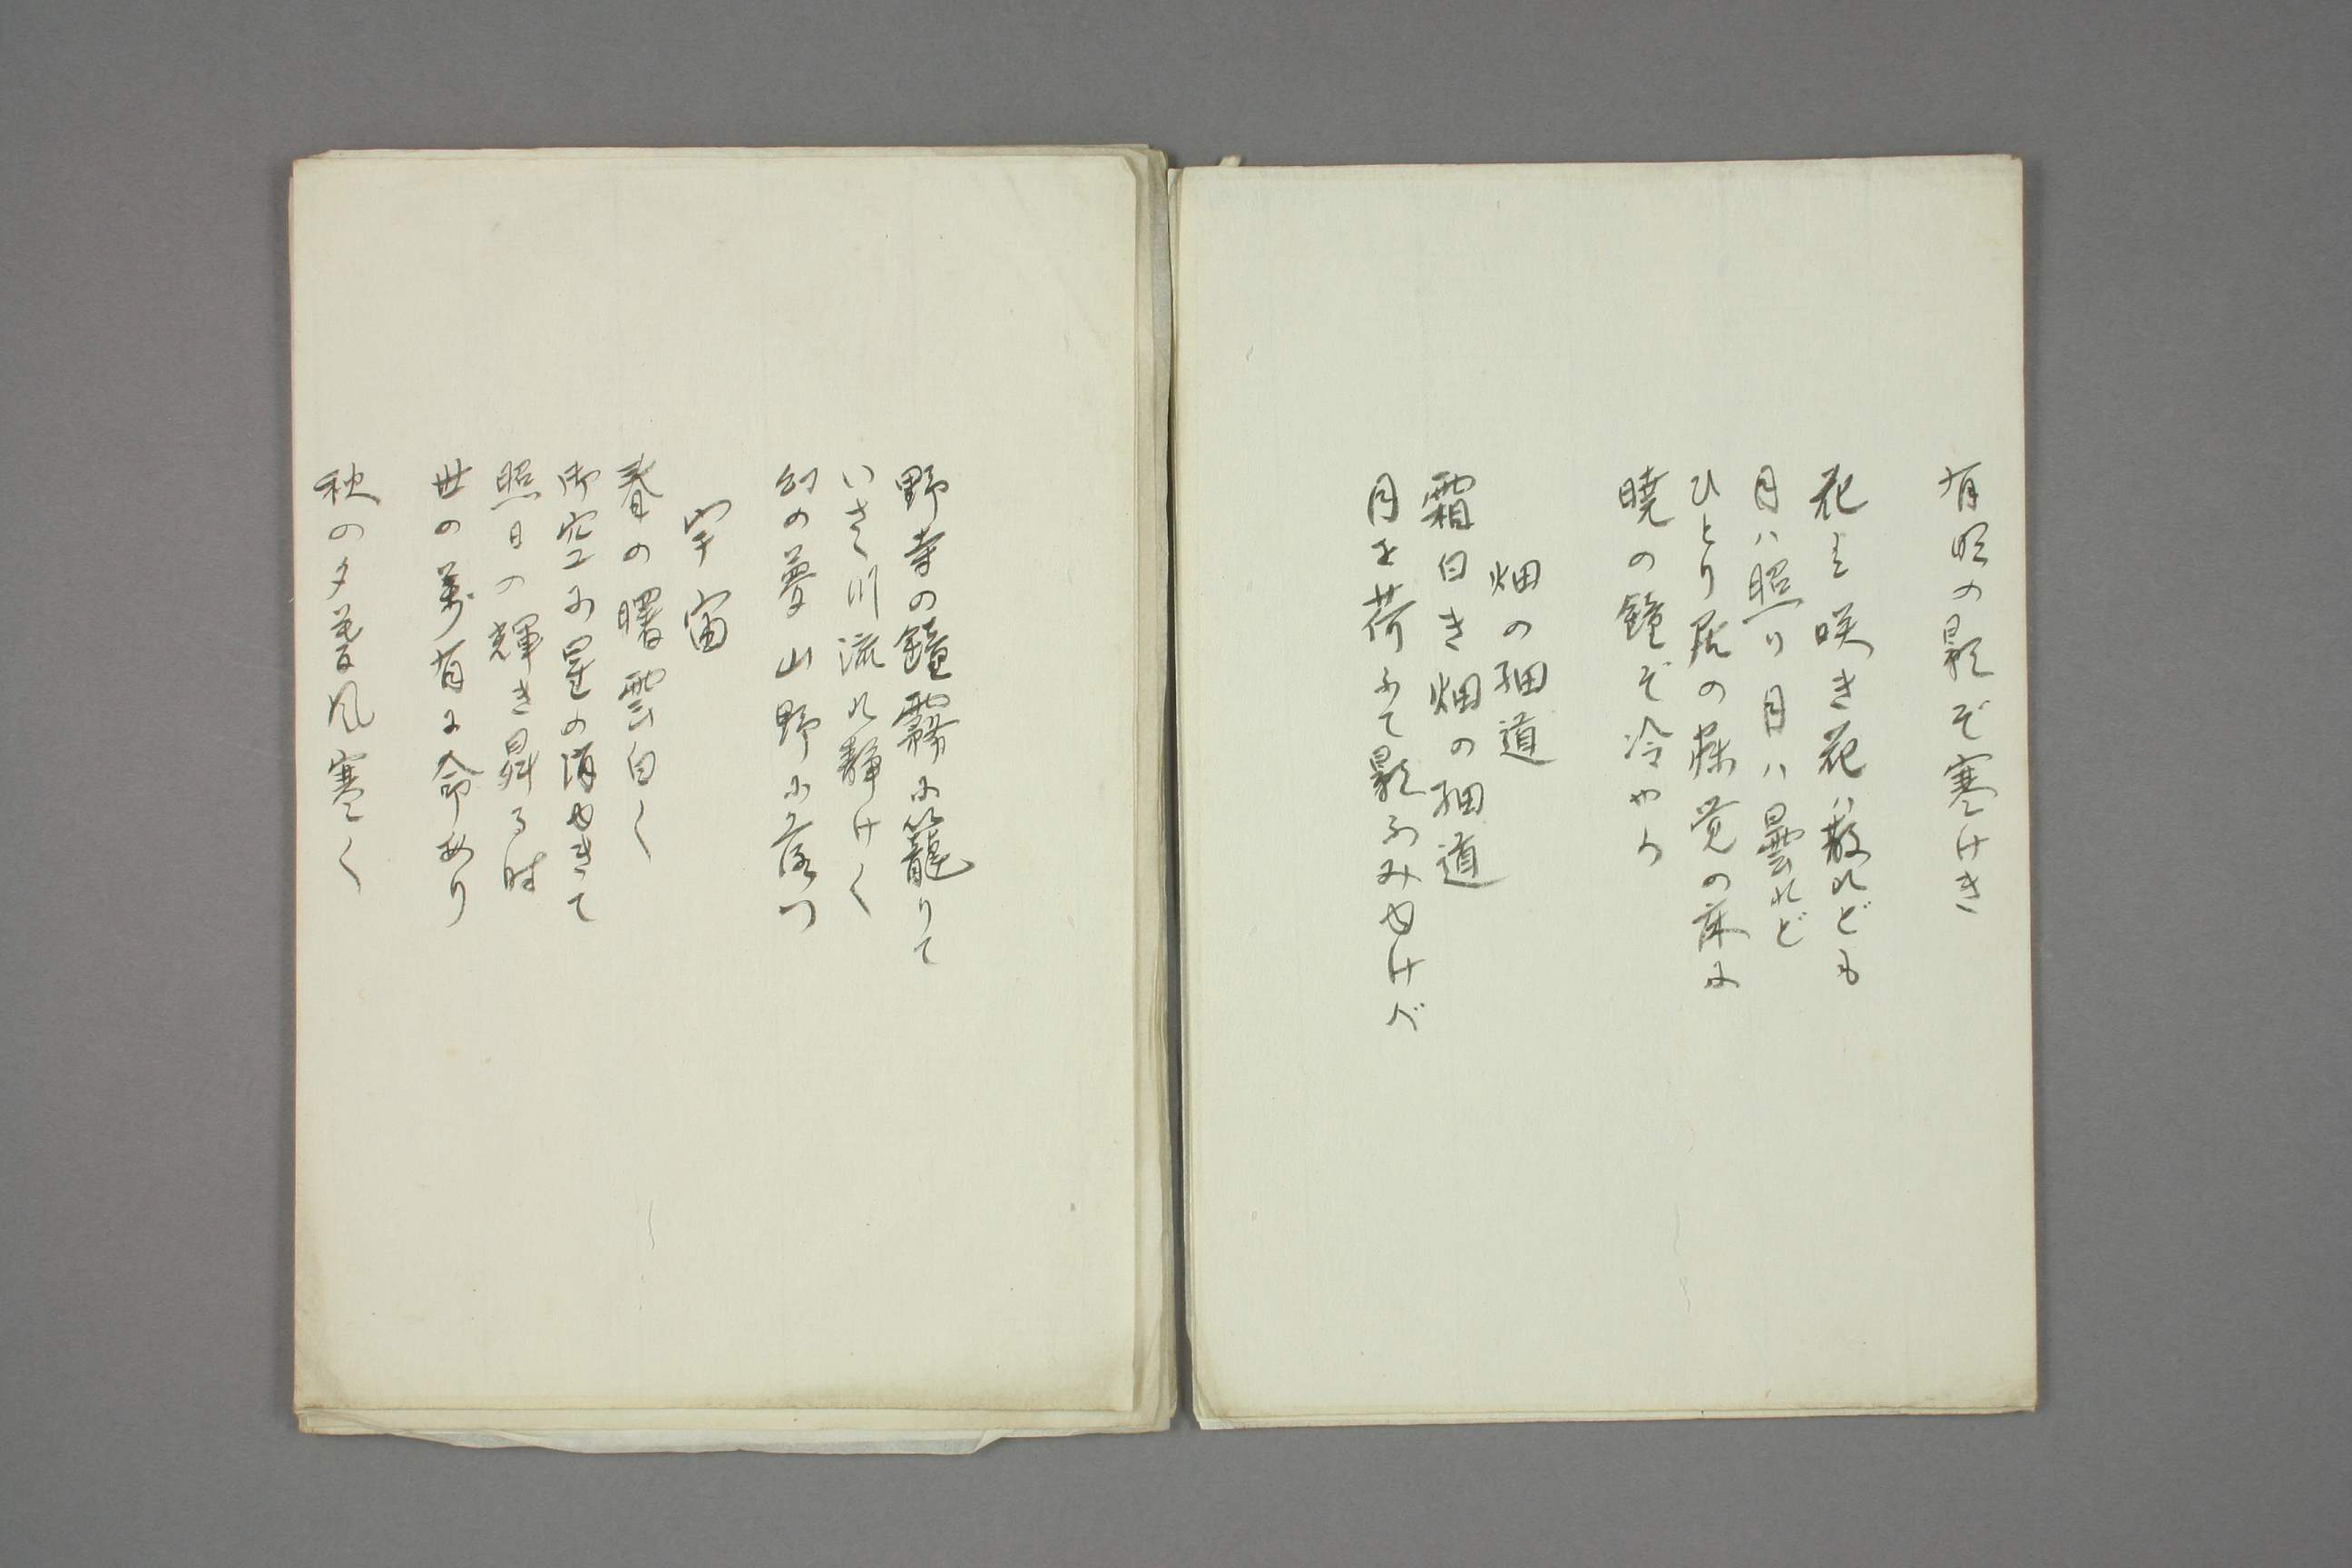 有明の影ぞ寒けき
花は咲き花ハ散れども
月ハ照り月ハ曇れど
ひとり居の寐覚の床に
暁の鐘ぞ冷やう
畑の細道
霜白き畑の細道
月を荷ふて影ふみゆけば
野寺の鐘霧に籠りて
いさゝ川流れ静けく
幻の夢山野に落つ
宇宙
春の曙雲白く
御空に星の消ゆきて
照日の輝き昇る時
世の萬有に命あり
秋の夕暮風寒く